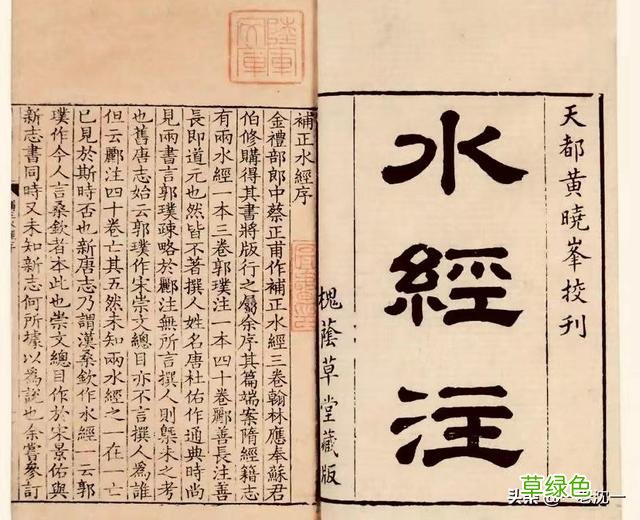 天都黄曉峯挍刊
水經注
槐蔭草堂藏版
陸軍
文庫
補正水經序
金禮部郎中蔡正甫作補正水經三卷翰林應奉蘇君
伯修購得其書將版行之屬余序其篇端案隋經籍志
有兩水經一本三卷郭璞注一本四十卷酈善長注善
長即道元也然皆不著撰人姓名唐杜佑作通典時尚
見兩書言郭璞疎略於酈注無所言撰人則槩未之考
也舊唐志始云郭璞作宋崇文總目亦不言撰人為誰
但云酈注四十卷亡其五然未知兩水經之一在一亡
已見於斯時否也新唐志乃謂漢桑欽作水經一云郭
璞作今人言桑欽者本此也崇文總目作於宋景佑與
新志書同時又未知新志何所據以為說也余嘗參訂
草绿色
头条